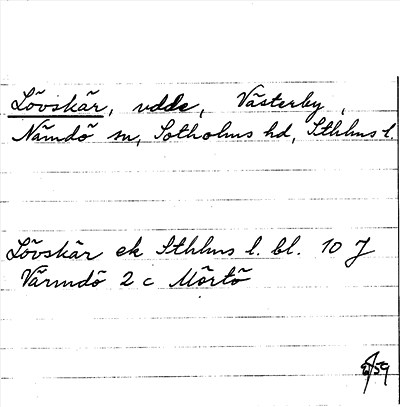 Lövskär, udde, Västerby,
Nämdö sn, Sotholms hd, Sthlms l.
Lövskär ek Sthlms l. bl. 10 J
Värmdö 2 c Mörtö
/59